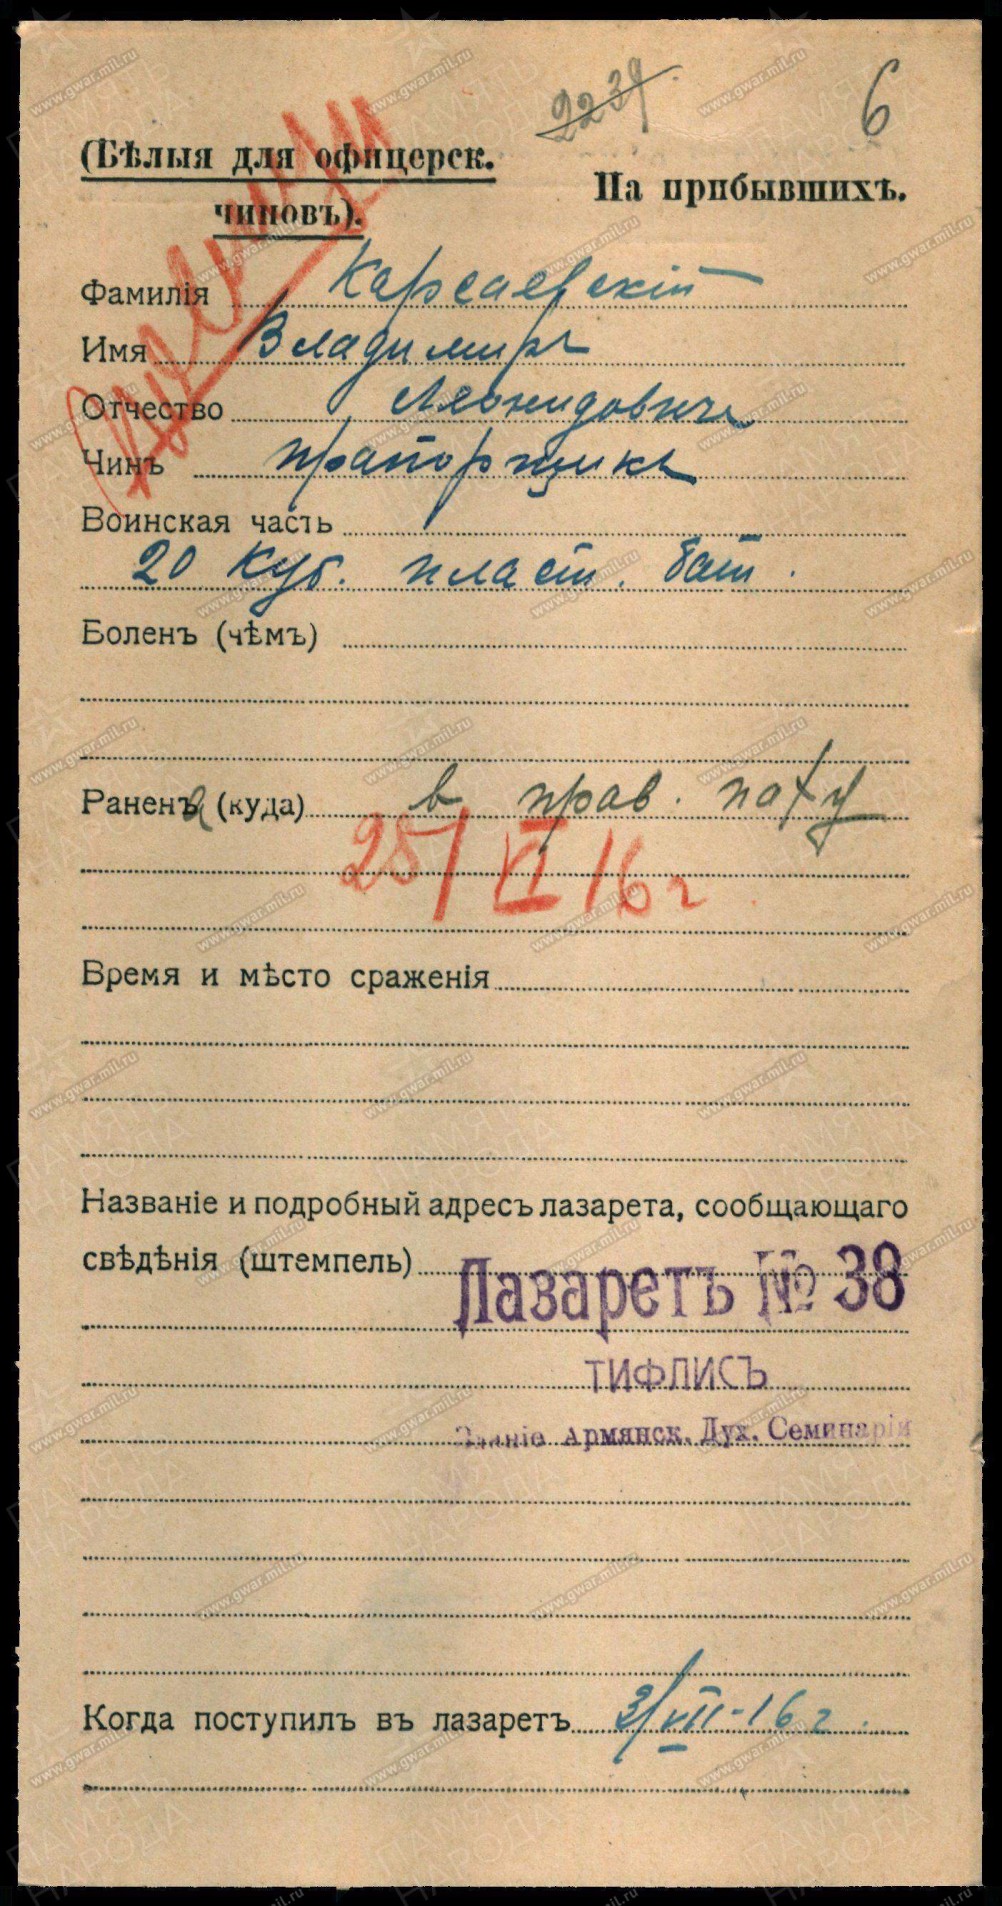 2239
6
(Бѣлыя для офицерск.
чиновъ).
На прибывшихъ.
Фамилія Карсаевскій
Имя Владимиръ
Отчество Леонидовичъ
Чинъ прапорщикъ
Воинская часть
20 Куб. пласт. бат.
Боленъ (чѣмъ)
Раненъ (куда) в прав. паху
25/VI 16 г
Время и мѣсто сраженія
Названіе и подробный адресъ лазарета, сообщающаго
свѣдѣнія (штемпель)
Лазаретъ № 38
ТИФЛИСЪ
Зданіе Армянск. Дух. Семинаріи
Когда поступилъ въ лазаретъ 3/VII-16 г.
www.gwar.mil.ru
ПАМЯТЬ НАРОДА